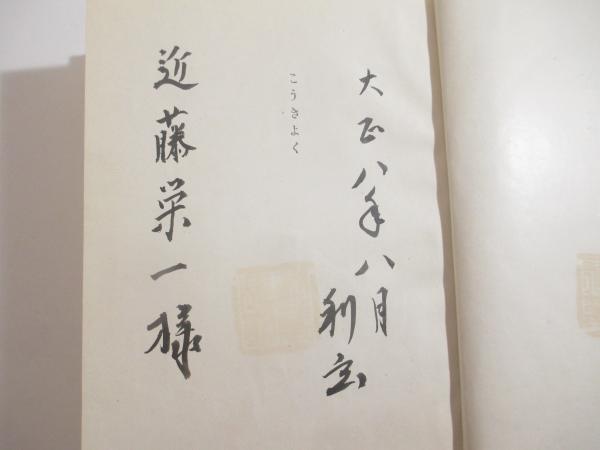 大正八年八月
利玄
こうぎよく
近藤栄一様